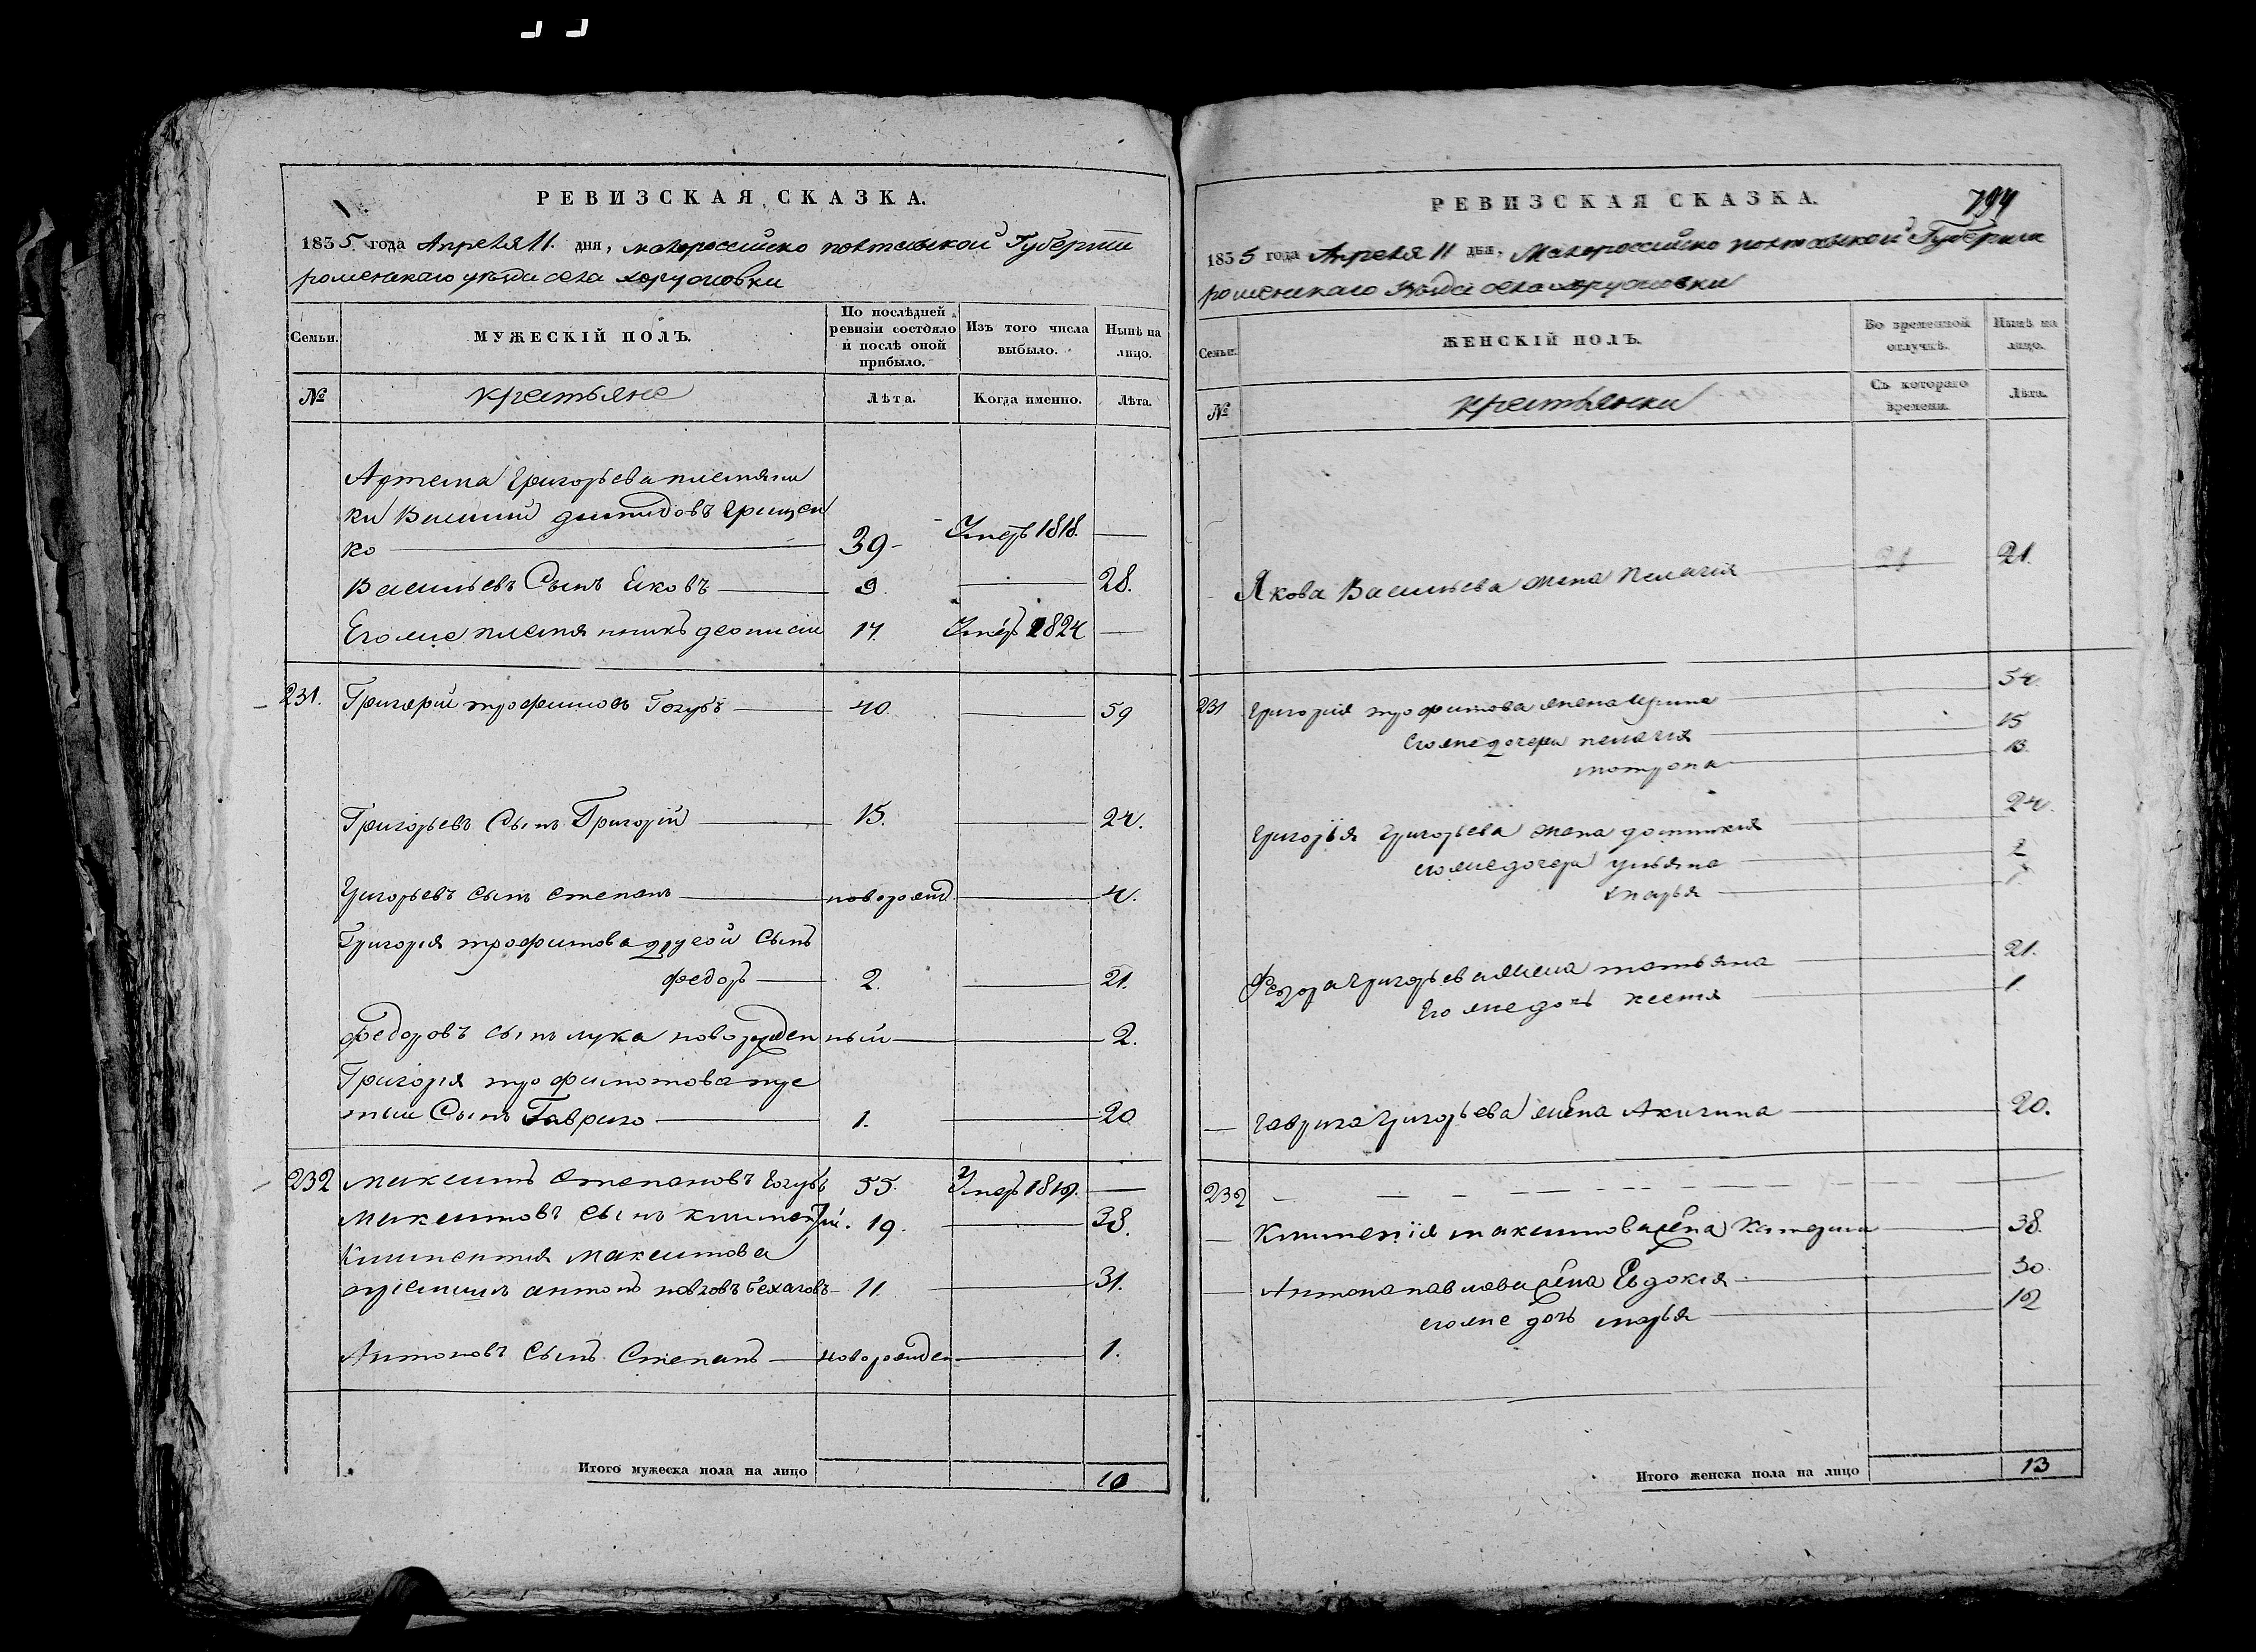 РЕВИЗСКАЯ СКАЗКА.
1835 года Апреля 11. дня, малороссийско полтавской Губернии
роменскаго уѣзда села хоружовки
Семьи.
МУЖЕСКІЙ ПОЛЪ.
По послѣдней ревизіи состояло и послѣ оной прибыло.
Изъ того числа выбыло.
Нынѣ на лицо.
№
крестьяне
Лѣта.
Когда именно.
Лѣта.
Артема Григорьева племянни
ки Василий демидовъ Грищен
ко 39 Умеръ 1818.
Васильевъ Сынъ Яковъ 9. 28.
Его же племянникъ деонисій 17. Умеръ 1824
231. Григорий трофимовъ Голубъ 40. 59
Григорьевъ Сынъ Григорій 15. 24.
Григорьевъ сынъ степанъ новорожд 4.
Григорія трофимова другой Сынъ
федоръ 2. 21.
федоровъ сынъ лука новорожденный 2.
Григорія трофимова тре
тий Сынъ Гаврило 1. 20
232 максимъ степановъ Голубъ 55. Умеръ 1819.
Максимовъ сынъ климентий. 19. 38.
Климентия максимова
приемышъ антонъ павловъ 11. 31.
Антоновъ Сынъ Степанъ новорожден 1.
Итого мужеска пола на лицо 10
РЕВИЗСКАЯ СКАЗКА. 794
1835 года Апреля 11 дня, Малороссийско полтавской Губернии
роменскаго уѣзда села хоружовки
Семьи.
ЖЕНСКІЙ ПОЛЪ.
Во временной отлучкѣ.
Нынѣ на лицо.
№
крестьянки
Съ котораго времени.
Лѣта.
Якова Васильева жена Пелагія 21.
231 Григорія трофимова жена Ирина 54.
Его же дочери пелагія 15
мотрона 13.
Григорія Григорьева жена домникія 24.
его же дочери ульяна 2
марья 1.
Федора Григорьева жена татьяна 21.
Его же дочь 1
Гаврила Григорьева жена Акилина 20.
232
Климентія максимова жена Катерина 38.
Антона павлова жена Евдокія 30.
его же дочь марья 12
Итого женска пола на лицо 13